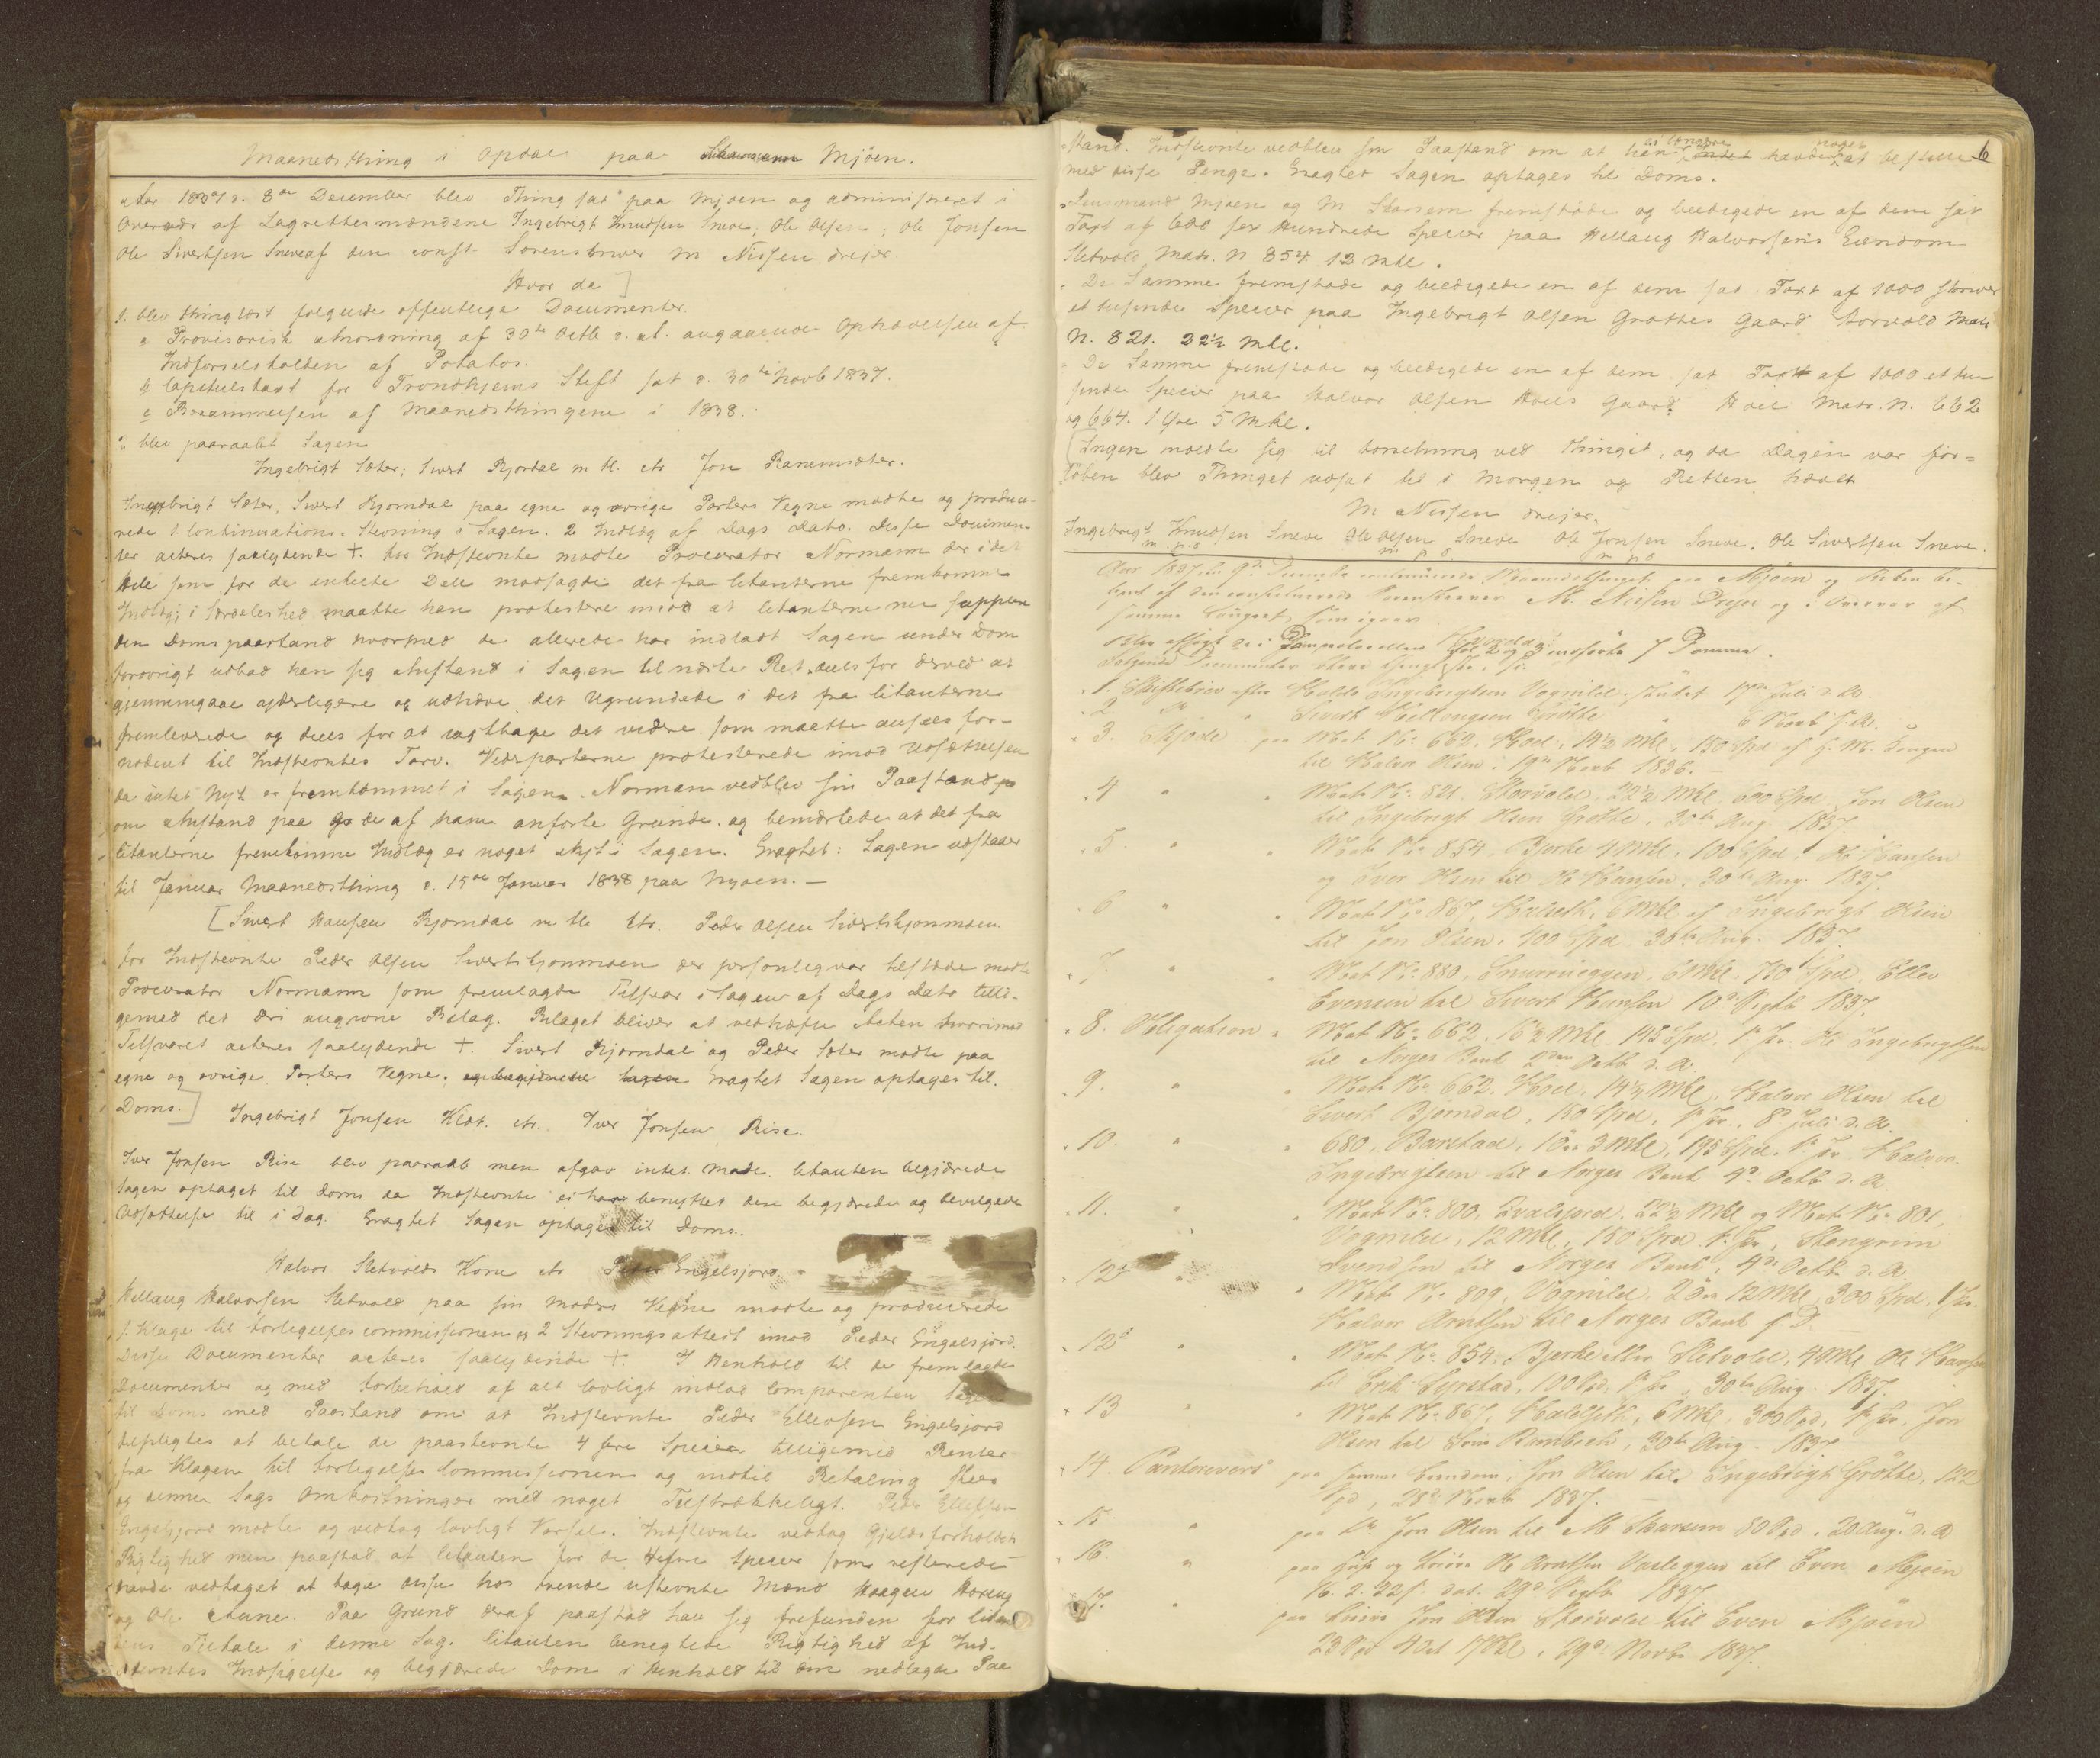 Maanedsthing i Opdal paa Mjöen.
Aar 1837 d. 8de December blev Thing sat paa Mjöen og administreret i
Overvær af Lagrettesmændene Ingebrigt Knudsen Sneve, Ole Olsen, Ole Jonsen
Ole Sivertsen Sneve af den const Sorenskriver M Nissen Drejer.
Hvor da
1. blev thinglæst følgende offentlige Documenter.
a Provisorisk Anordning af 30te Octb d. A. angaaende Ophævelsen af
Indførselstolden af Potatos.
b Capitelstaxt for Trondhjems Stift sat d. 30te Novb 1837.
c Berammelsen af Maanedsthingene i 1838.
2. blev paaraabt Sagen
Ingebrigt Sæter, Sivert Bjørndal m fl. ctr Jon Ranemsæter.
Ingebrigt Sæter, Sivert Bjørndal paa egne og øvrige Parters Vegne mødte og produce-
rede 1. Continuations-Stevning i Sagen. 2 Indlæg af Dags Dato. Disse Documen-
ter acteres saalydende +. For Indstevnte mødte Procurator Normann der i det
Hele som for de enkelte Dele modsagde det fra Citanterne fremkomne
Indlæg; i Særdeleshed maatte han protestere imod at Citanterne nu supplere
den Domspaastand hvormed de allerede har indladt Sagen under Dom
forøvrigt udbad han sig Anstand i Sagen til næste Ret, deels for derved at
gjennemgaae yderligere og udhæve det Ugrundede i det fra Citanterne
fremleverede og deels for at iagttage det videre som maatte ansees for-
nødent til Indstevntes Tarv. Vederparterne protesterede imod Udsættelsen
da intet Nyt er fremkommet i Sagen. Norman vedblev sin Paastand
om Anstand paa de af ham anførte Grunde, og bemærkede at det fra
Citanterne fremkomne Indlæg er noget Nyt i Sagen. Eragtet: Sagen udstaaer
til Januar Maanedsthing d. 15de Januar 1838 paa Mjøen. —
[Sivert Hansen Bjørndal m fl ctr. Peder Olsen Sivertshjonmoen.
For Indstevnte Peder Olsen Sivertshjonmoen der personlig var tilstæde mødte
Procurator Normann som fremlagde Tilsvar i Sagen af Dags Dato tilli-
gemed det deri angivne Bilag. Bilaget bliver at vedhæfte Acten hvorimod
Tilsvaret acteres saalydende +. Sivert Bjørndal og Peder Sæter mødte paa
egne og øvrige Parters Vegne. Eragtet Sagen optages til
Doms.] Ingebrigt Jonsen Klæt. ctr. Iver Jonsen Rise.
Iver Jonsen Rise blev paaraabt men afgav intet Møde. Citanten begjærede
Sagen optaget til Doms da Indstevnte ei har benyttet den begjærede og bevilgede
Udsættelse til i Dag. Eragtet Sagen optages til Doms.
Halvor Sletvolds Kone ctr Peder Engelsjord
Hellaug Halvorsen Sletvold paa sin Moders Vegne mødte og producerede
1. Klage til Forligelsescommissionen og 2 Stevningsattest imod Peder Engelsjord.
Disse Documenter acteres saalydende +. I Henhold til de fremlagte
Documenter og med Forbehold af alt lovligt indlod Comparenten Sagen
til Doms med Paastand om at Indstevnte Peder Ellevsen Engelsjord
tilpligtes at betale de paastevnte 4 fire Specier tilligemed Renter
fra Klagen til Forligelses Commissionen og indtil Betaling skeer
og denne Sags Omkostninger med noget Tilstrækkeligt. Peder Ellefsen
Engelsjord mødte og vedtog lovligt Varsel. Indstevnte vedtog Gjeldsforholdets
Rigtighed men paastod at Citanten for de 4 fire Specier som resterede
havde vedtaget at tage disse hos tvende ustevnte Mænd Haagen
og Ole Aune. Paa Grund deraf paastod han sig frifunden for Citan-
tens Tiltale i denne Sag. Citanten benegtede Rigtighed af Ind-
stevntes Indsigelse og begjærede Dom i Henhold til sin nedlagde Paa
6
stand. Indstevnte vedblev sin Paastand om at han ei længere havde noget at bestille
med disse Penge. Eragtet Sagen optages til Doms.
Lensmand Mjøen og M Skarsem fremstode og beedigede en af dem sat
Taxt af 600 sex Hundrede Specier paa Hellaug Halvorsens Eiendom
Sletvold Matr. N 854. 12 Mkl.
De Samme fremstode og beedigede en af dem sat Taxt af 1000 skriver
et tusende Specier paa Ingebrigt Olsen Grøttes Gaard Storvold Matr
N. 821. 22½ Mkl.
De Samme fremstode og beedigede en af dem sat Taxt af 1000 et tu-
sende Specier paa Halvor Olsen Hoels Gaard Hoel Matr. N. 662
og 664. 1 Øre 5 Mkl.
[Ingen meldte sig til Forretning ved Thinget, og da Dagen var for-
løben blev Thinget udsat til i Morgen og Retten hævet
M Nissen Drejer.
Ingebrigt Knudsen Sneve Ole Olsen Sneve Ole Jonsen Sneve. Ole Sivertsen Sneve.
m. p. s m p s m p s
Aar 1837 den 9de Decembr continuerede Maanedsthinget paa Mjöen og Retten be-
tjent af den constituerede Sorenskriver M. Nissen Dreyer og i Overvær af
samme Laugret som igaar.
Blev afsagt de i Domprotocollen Fol 2 og 3 indførte 7 Domme.
Følgende Documenter bleve thinglæste, s:
1. Skiftebrev efter Ingebrigtsen Vognild, sluttet 17de Juli d. A.
2 Do " Sivert Hellaugsen Grötte " 6 Novb f. A.
3. Skjøde paa Matr No 662. Hoel, 14½ Mkl, 150 Spd af J. M.
til Halvor Olsen. 19de Novb 1836.
4 " " Matr No 821. Storvold, 22½ Mkl. 600 Spd Jon Olsen
til Ingebrigt Olsen Grøtte, 30te Aug 1837.
5 " " Matr No 854. Bjerke 4 Mkl, 100 Spd. Ole Hansen
og Iver Olsen til Ole Hansen. 30te Aug. 1837.
6 " " Matr No 867. 6 Mkl af Ingebrigt Olsen
til Jon Olsen. 400 Spd 30te Aug. 1837.
7. " " Matr No 880. Snurrueggen, 6 Mkl. 750 Spd. Ellev
Evensen til Sivert Hansen 10de Septb 1837.
8. Obligation " Matr No 662. 16½ Mkl. 145 Spd. 1ste Pr. Ole Ingebrigtsen
til Norges Bank 2den Octb d. A.
9. " " Matr No 662. Hoel. 14½ Mkl. Halvor Olsen til
Sivert Bjørndal, 150 Spd, 1ste Pr., 8de Juli d. A.
10. " " 680. Baarstad, 1 Øre 3 Mkl, 195 Spd. 1ste Pr Halvor
Ingebrigtsen til Norges Bank 4de Octb d. A.
11. " " Matr No 800, 22½ Mkl og Matr No 801,
Vognild, 12 Mkl, 150 Spd 1ste Pr, Stengrim
Svendsen til Norges Bank, 4de Octb d. A
12a " " Matr No 809, Vognild. 2 Øre 12 Mkl. 300 Spd. 1ste Pr.
Halvor Arntsen til Norges Bank s. D.
12b " " Matr No 854. Bjerke eller Sletvold, 4 Mkl Ole Hansen
til Erik Syrstad, 100 Spd. 1ste Pr. 30te Aug. 1837.
13 " " Matr No 867, 6 Mkl, 300 Spd, 1ste Pr. Jon
Olsen til 30te Aug. 1837.
14. Panterevers paa samme Eiendom, Jon Olsen til Ingebrigt Grötte, 122
Spd, 28de Novb 1837.
15. " paa Do Jon Olsen til M Skarsem 80 Spd. 20 Aug. d. A
16. " paa Huse og Løsøre Ole Arntsen til Even Mjöen
dat. 29de Septb 1837
17. " paa Løsøre Jon Olsen Storvold til Even Mjöen
23 Spd 4 Ort 17 Skl. 29de Novb 1837.